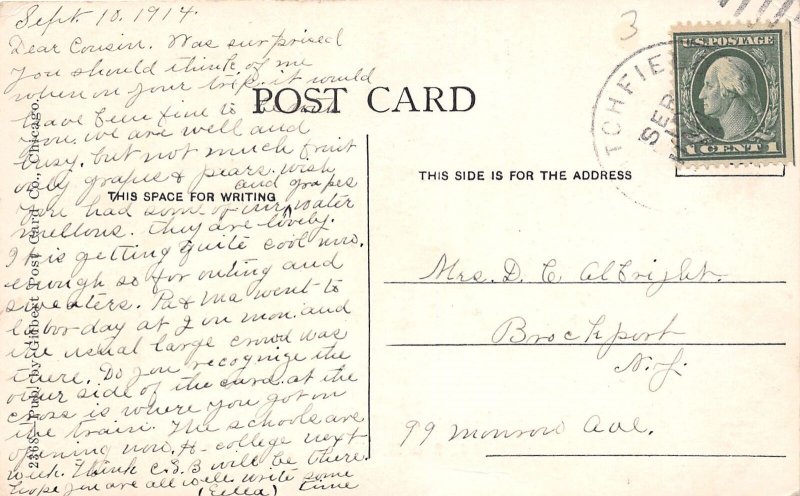 Sept. 10. 1914.
Dear Cousin. Was surprised
you should think of me
when on your trip, it would
have been fine to
you. we are well and
busy, but not much fruit
only grapes & pears. wish
you had some of our water
and grapes
mellons. They are lovely.
It is getting quite cool now.
enough so for outing and
sweaters. Pa & Ma went to
labor-day at Ion mon. and
the usual large crowd was
there. Do you recognize the
other side of the card. at the
cross is where you got on
the train. The schools are
opening now, H- college next
week. Think C. & B will be there.
hope you are all well. write some
(Ella) time
POST CARD
THIS SPACE FOR WRITING
THIS SIDE IS FOR THE ADDRESS
2368-Pub. by Gilbert Post Card Co., Chicago.
3
TCHFIE
SEP
U.S. POSTAGE
1 CENT 1
Mrs. D. C. Albright.
Brockport
N.Y.
99 Monrow Ave.